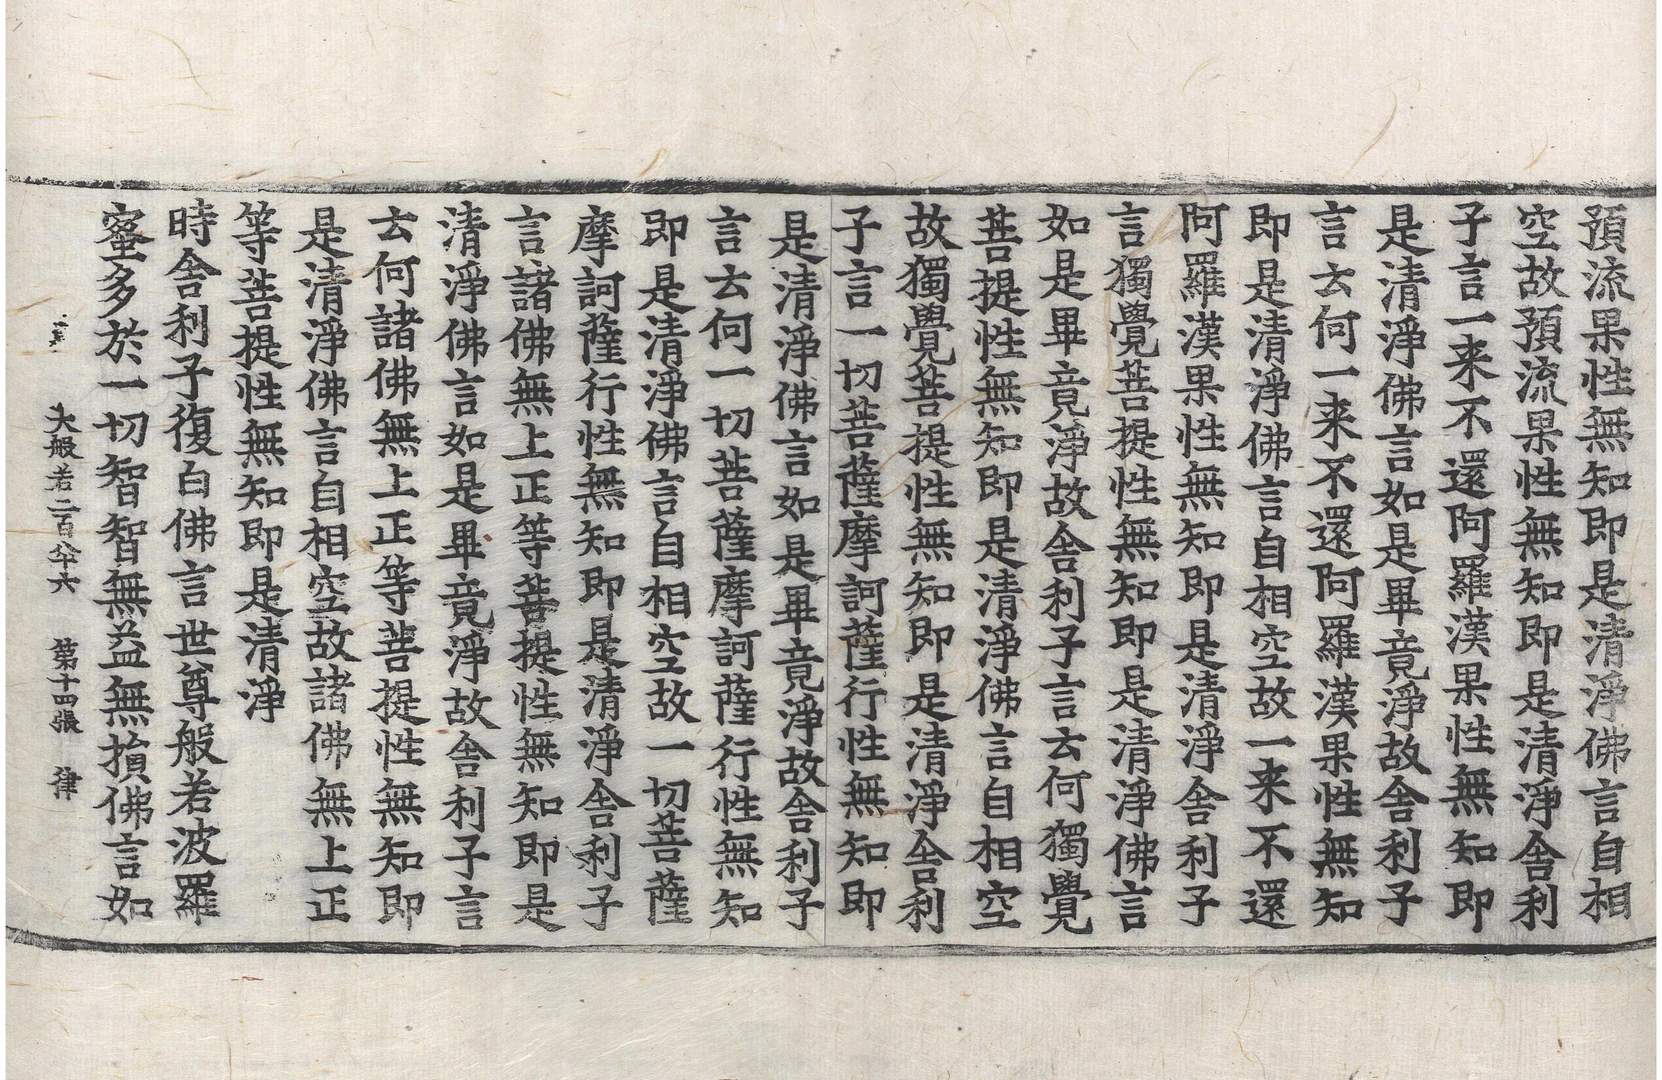 預流果性無知即是清淨佛言自相
空故預流果性無知即是清淨舍利
子言一来不還阿羅漢果性無知即
是清淨佛言如是畢竟淨故舍利子
言云何一来不還阿羅漢果性無知
即是清淨佛言自相空故一来不還
阿羅漢果性無知即是清淨舍利子
言獨覺菩提性無知即是清淨佛言
如是畢竟淨故舍利子言云何獨覺
菩提性無知即是清淨佛言自相空
故獨覺菩提性無知即是清淨舍利
子言一切菩薩摩訶薩行性無知即
是清淨佛言如是畢竟淨故舍利子
言云何一切菩薩摩訶薩行性無知
即是清淨佛言自相空故一切菩薩
摩訶薩行性無知即是清淨舍利子
言諸佛無上正等菩提性無知即是
清淨佛言如是畢竟淨故舍利子言
云何諸佛無上正等菩提性無知即
是清淨佛言自相空故諸佛無上正
等菩提性無知即是清淨
時舍利子復白佛言世尊般若波羅
蜜多於一切智智無益無損佛言如
大般若二百八十六 第十四張 律